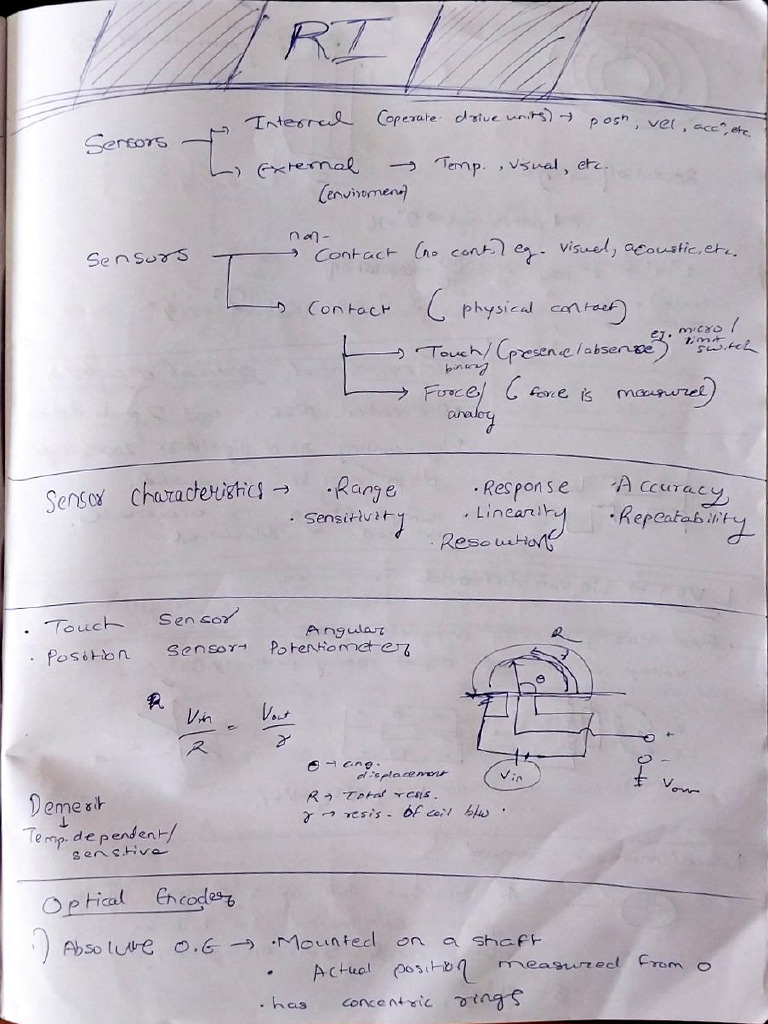 R.I
Sensors → Internal (operate drive units) → posn, vel, accn, etc.
→ External → Temp., visual, etc.
(enviroment)
Sensors → non-contact (no cont.) eg. visual, acoustic, etc.
→ Contact (physical contact)
→ Touch/binary (presence/absense) eg. micro/limit switch
→ Force/analog (force is measured)
Sensor characteristics → • Range • Response • Accuracy
• Sensitivity • Linearity • Repeatability
• Resolution
• Touch Sensor
• Position Sensor → Angular Potentiometer
R
θ
Vin/R = Vout/r
+
-
Vin
Vout
θ → ang. displacement
R → Total resis.
r → resis. of coil b/w .
Demerit
↓
Temp. dependent/
sensitive
Optical Encoder
i) Absolute O.E → • Mounted on a shaft
• Actual position measured from 0
• has concentric rings